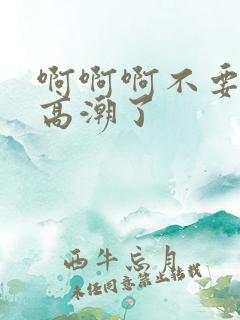 啊啊啊不要
高潮了
西牛忘月
未经同意禁止转载